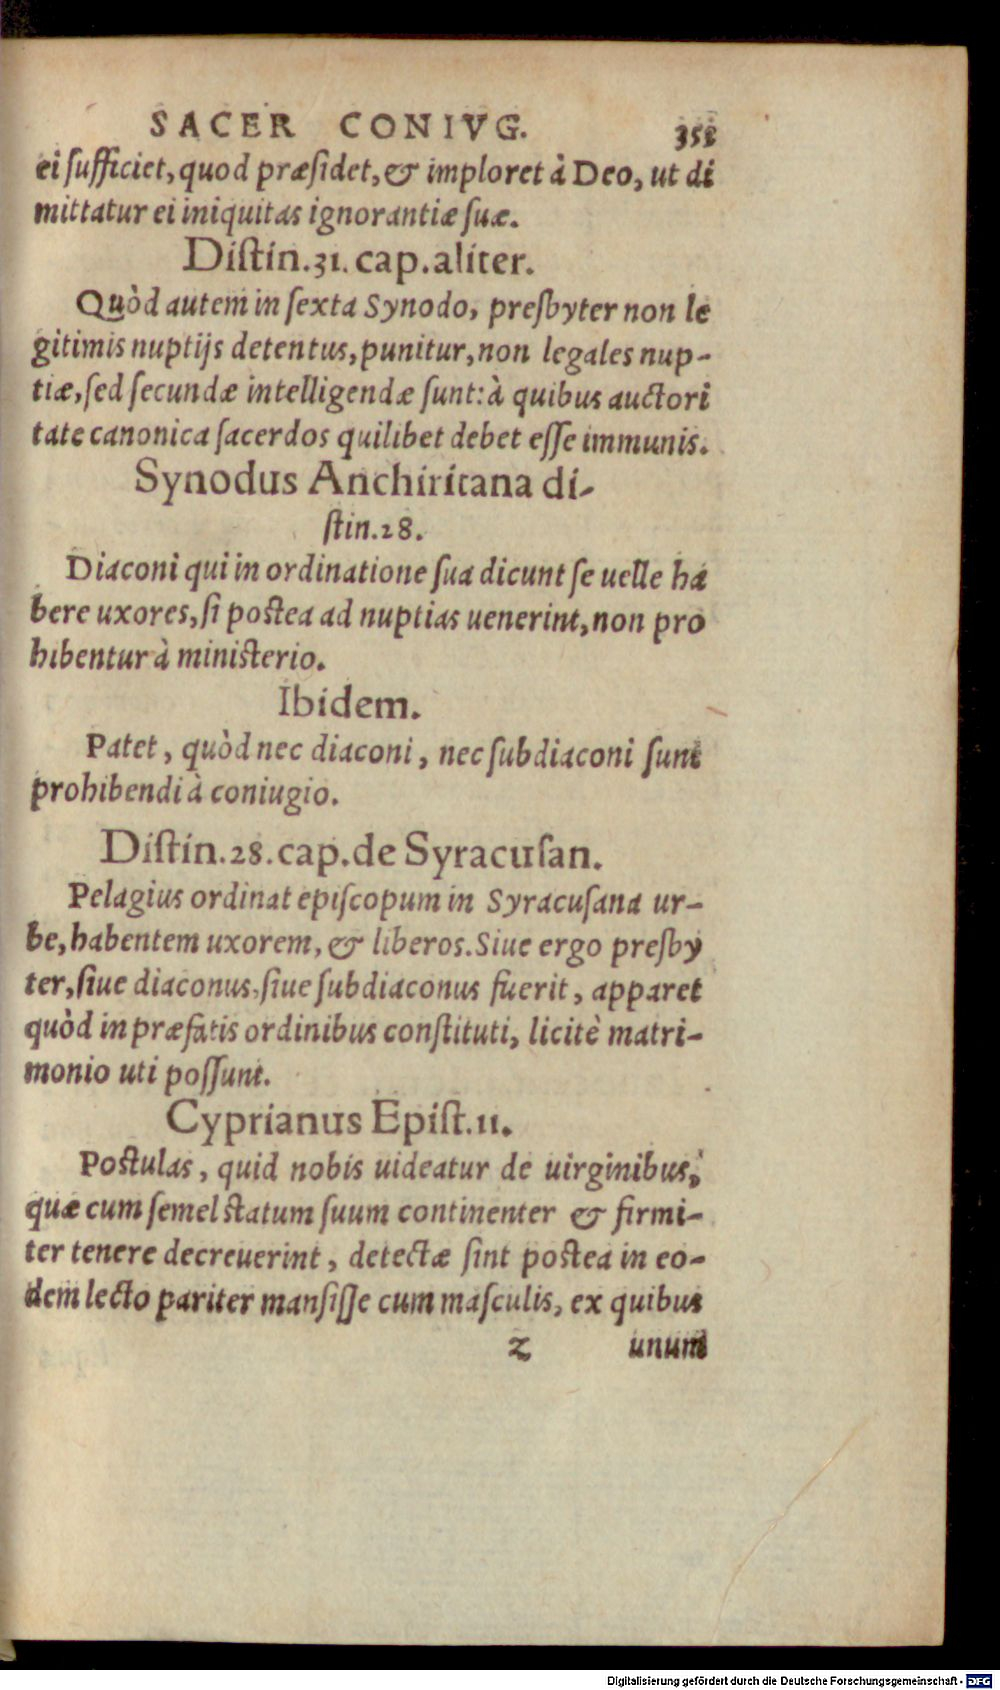 SACER CONIVG. 353
ei ſufficiet, quod præſidet, & imploret à Deo, ut di
mittatur ei iniquitas ignorantiæ ſuæ.
Diſtin.31. cap.aliter.
Quòd autem in ſexta Synodo, preſbyter non le
gitimis nuptijs detentus, punitur, non legales nup-
tiæ, ſed ſecundæ intelligendæ ſunt: à quibus auctori
tate canonica ſacerdos quilibet debet eſſe immunis.
Synodus Anchiritana di-
ſtin.28.
Diaconi qui in ordinatione ſua dicunt ſe uelle ha
bere uxores, ſi poſtea ad nuptias uenerint, non pro
hibentur à miniſterio.
Ibidem.
Patet, quòd nec diaconi, nec ſubdiaconi ſunt
prohibendi à coniugio.
Diſtin.28.cap.de Syracuſan.
Pelagius ordinat epiſcopum in Syracuſana ur-
be, habentem uxorem, & liberos. Siue ergo preſby
ter, ſiue diaconus, ſiue ſubdiaconus fuerit, apparet
quòd in præfatis ordinibus conſtituti, licitè matri-
monio uti poſſunt.
Cyprianus Epiſt.11.
Poſtulas, quid nobis uideatur de uirginibus,
quæ cum ſemel ſtatum ſuum continenter & firmi-
ter tenere decreuerint, detectæ ſint poſtea in eo-
dem lecto pariter manſiſſe cum maſculis, ex quibus
z unum
Digitalisierung gefördert durch die Deutsche Forschungsgemeinschaft - DFG